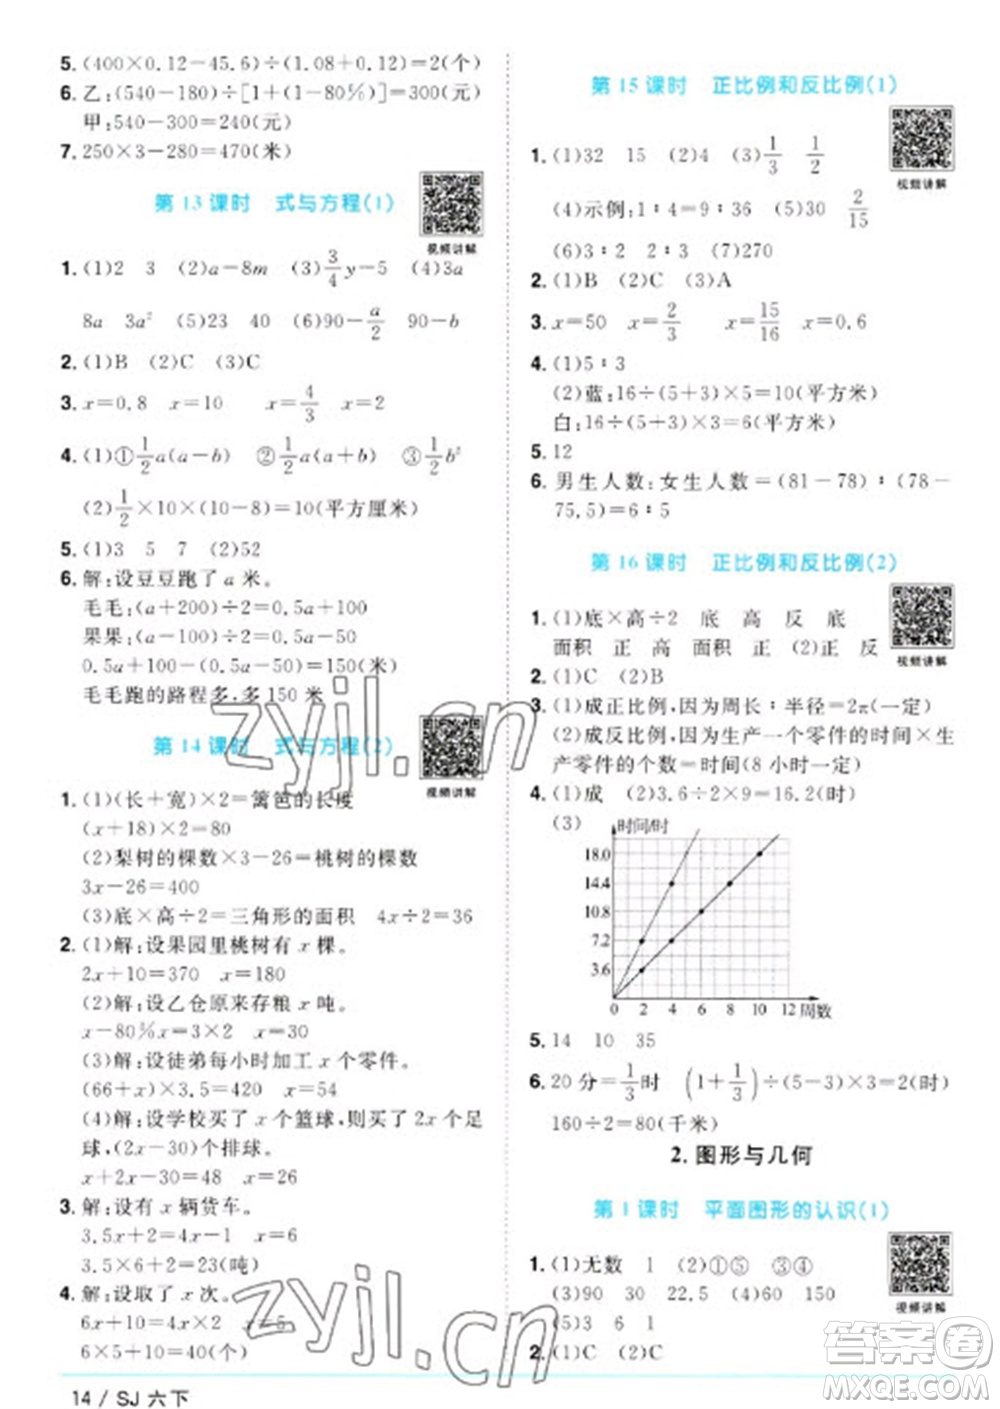 5. (400×0.12−45.6)÷(1.08+0.12)=2(个)
6. 乙:(540−180)÷[1+(1−80%)]=300(元)
甲:540−300=240(元)
7. 250×3−280=470(米)
第 13 课时 式与方程(1)
视频讲解
1. (1)2 3 (2)a−8m (3)3/4y−5 (4)3a
8a 3a² (5)23 40 (6)90−a/2 90−b
2. (1)B (2)C (3)C
3. x=0.8 x=10 x=4/3 x=2
4. (1)①1/2a(a−b) ②1/2a(a+b) ③1/2b²
(2)1/2×10×(10−8)=10(平方厘米)
5. (1)3 5 7 (2)52
6. 解:设豆豆跑了 a 米。
毛毛:(a+200)÷2=0.5a+100
果果:(a−100)÷2=0.5a−50
0.5a+100−(0.5a−50)=150(米)
毛毛跑的路程多,多 150 米
第 14 课时 式与方程(2)
视频讲解
1. (1)(长+宽)×2=篱笆的长度
(x+18)×2=80
(2)梨树的棵数×3−26=桃树的棵数
3x−26=400
(3)底×高÷2=三角形的面积 4x÷2=36
2. (1)解:设果园里桃树有 x 棵。
2x+10=370 x=180
(2)解:设乙仓原来存粮 x 吨。
x−80%x=3×2 x=30
(3)解:设徒弟每小时加工 x 个零件。
(66+x)×3.5=420 x=54
(4)解:设学校买了 x 个篮球,2x 个足
球,(2x−30)个排球。
x+2x+2x−30=200 x=46
3. 解:设有 x 辆货车。
3.5x+2=4x−1 x=6
3.5×6+2=23(吨)
4. 解:设取了 x 次。
6x+10=4x×2 x=5
6×5+10=40(个)
14 / SJ 六下
第 15 课时 正比例和反比例(1)
视频讲解
1. (1)32 15 (2)4 (3)1/3 1/2
(4)示例:1∶4=9∶36 (5)30 2/15
(6)3∶2 2∶3 (7)270
2. (1)B (2)C (3)A
3. x=50 x=2/3 x=15/16 x=0.6
4. (1)5∶3
(2)蓝:16÷(5+3)×5=10(平方米)
白:16÷(5+3)×3=6(平方米)
5. 12
6. 男生人数:女生人数=(81−78)∶(78−
75.5)=6∶5
第 16 课时 正比例和反比例(2)
视频讲解
1. (1)底×高÷2 底 高 反 底
面积 正 高 面积 正 (2)正 反
2. (1)C (2)B
3. (1)成正比例,因为周长∶半径=2π(一定)
(2)成反比例,因为生产一个零件的时间×
生产零件的个数=时间(8 小时一定)
4. (1)成 (2)3.6÷2×9=16.2(时)
(3)
时间/时
18.0
14.4
10.8
7.2
3.6
0 2 4 6 8 10 12 周数
5. 14 10 35
6. 20 分=1/3时 (1+1/3)÷(5−3)×3=2(时)
160÷2=80(千米)
2. 图形与几何
第 1 课时 平面图形的认识(1)
视频讲解
1. (1)无数 1 (2)①⑤ ③④
(3)90 30 22.5 (4)60 150
(5)3 6 1
2. (1)C (2)B
zyjl.cn
zyjl.cn
答案卷